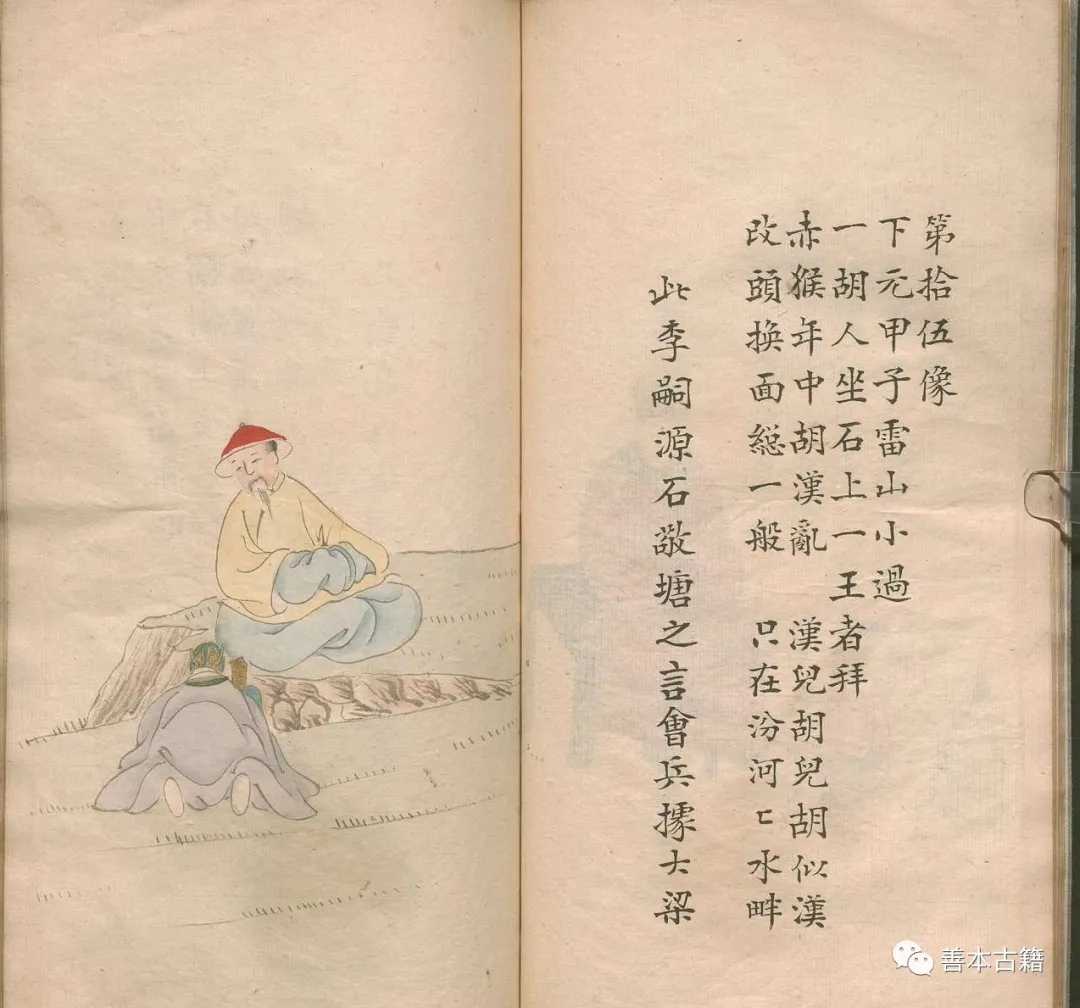 第拾伍像
下元甲子雷山小過
一胡人坐石上一王者拜
赤猴年中胡漢亂 漢兒胡兒胡似漢
改頭換面総一般 只在汾河匕水畔
此李嗣源石敬塘之言會兵據大梁
善本古籍